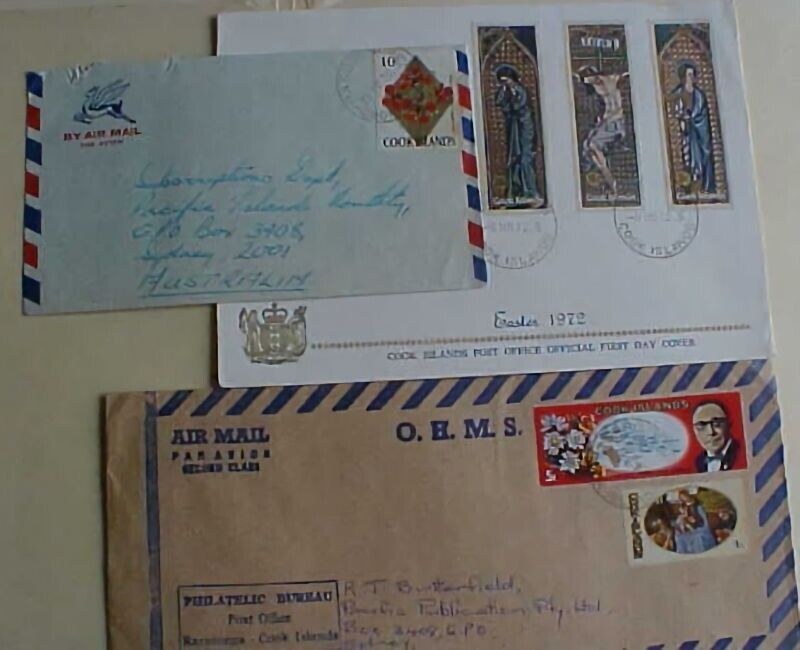 10
COOK ISLANDS
BY AIR MAIL
PAR AVION
Subscriptions Dept,
Pacific Islands Monthly,
G.P.O Box 3408,
Sydney 2001
AUSTRALIA
Cook Islands
Cook Islands
Cook Islands
COOK ISLANDS
COOK ISLANDS
Easter 1972
COOK ISLANDS POST OFFICE OFFICIAL FIRST DAY COVER
AIR MAIL
PAR AVION
SECOND CLASS
O. H. M. S.
COOK ISLANDS
5c
PHILATELIC BUREAU
Post Office
Rarotonga - Cook Islands
R T Butterfield,
Pacific Publication Pty. Ltd.
Box 3408, G.P.O.
Sydney,